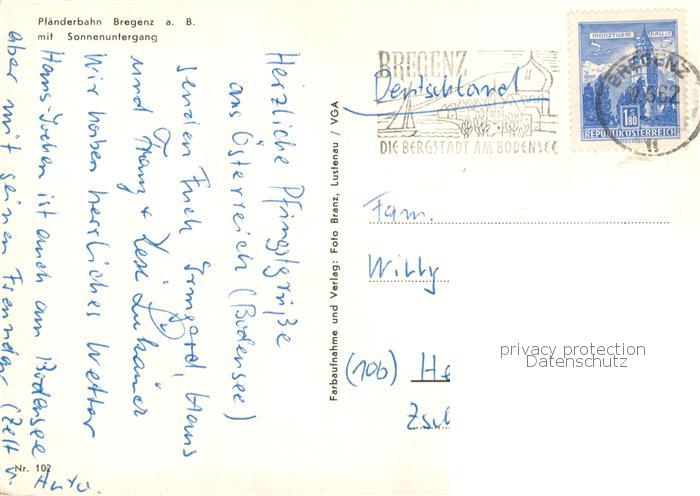 Pfänderbahn Bregenz a. B.
mit Sonnenuntergang
Herzliche Pfingstgrüße
aus Österreich (Bodensee)
senden Euch Irmgard, Hans
und Franz +
Wir haben herrliches Wetter
Hans-Jochen ist auch am Bodensee
aber mit seinen Freunden (Zelt u.
Auto.
Nr. 102
Farbaufnahme und Verlag: Foto Branz, Lustenau / VGA
BREGENZ
Deutschland
DIE BERGSTADT AM BODENSEE
MÜNZTURM HALL I. T.
1.80
REPUBLIK ÖSTERREICH
BREGENZ
Fam.
Willy
(10b) He
Zsch
privacy protection
Datenschutz